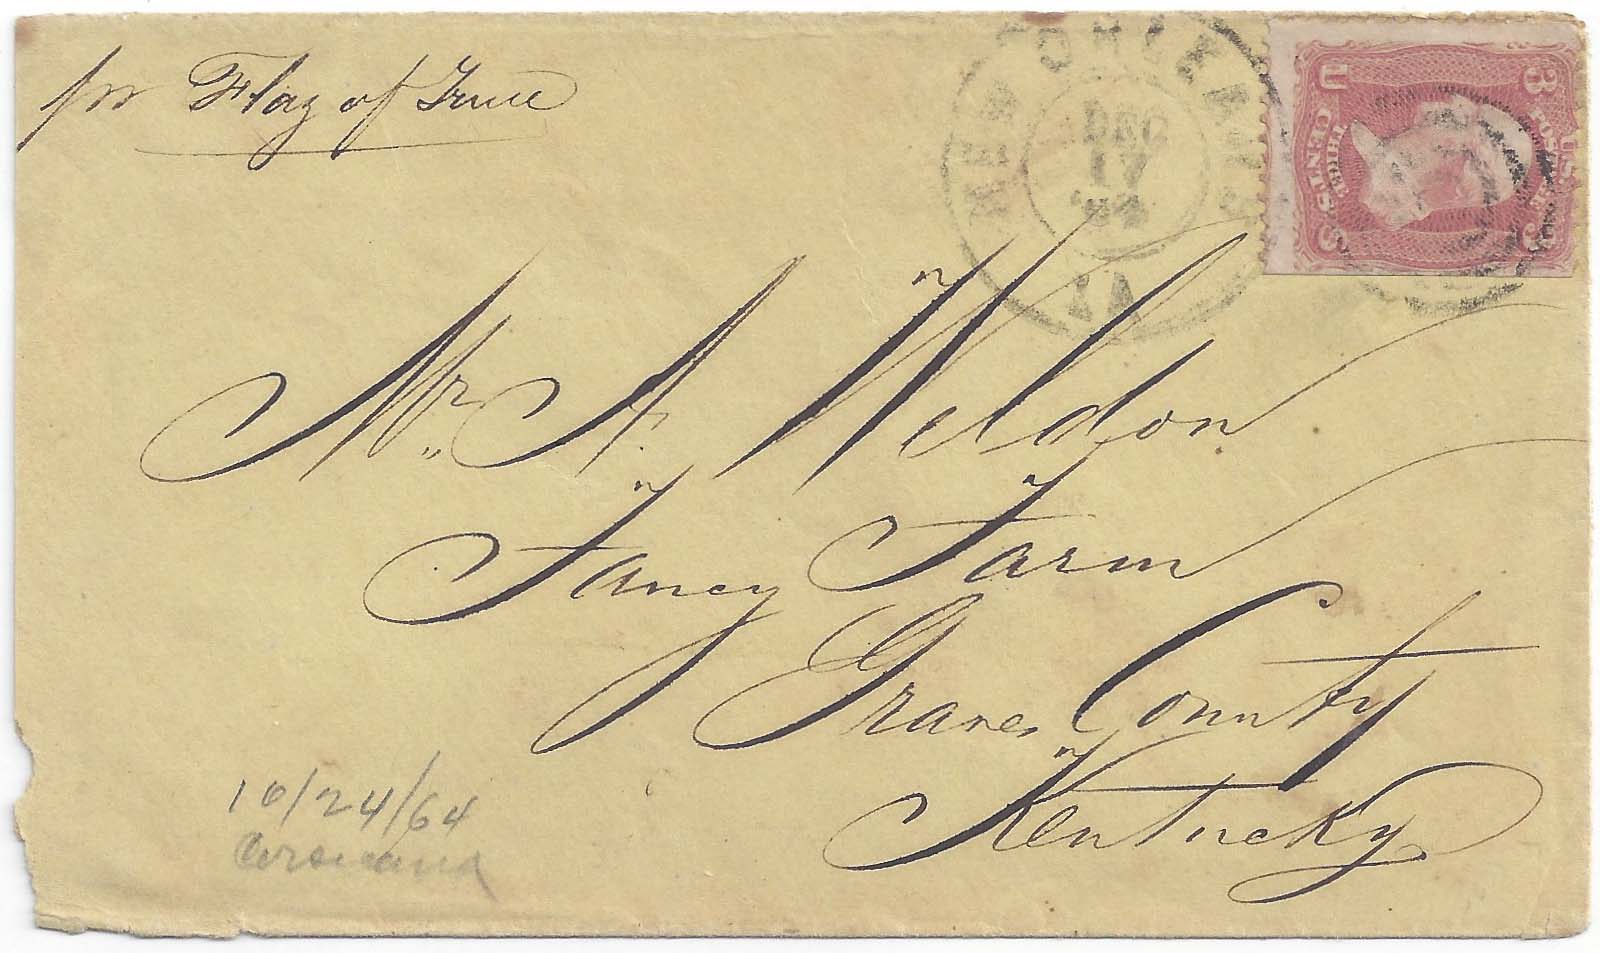 per Flag of Truce
NEW ORLEANS
DEC
17
'64
LA
U.S. POSTAGE
3 U 3 S
THREE CENTS
Mr. A. Weldon
Fancy Farm
Graves County
Kentucky
10/24/64
Corsicana